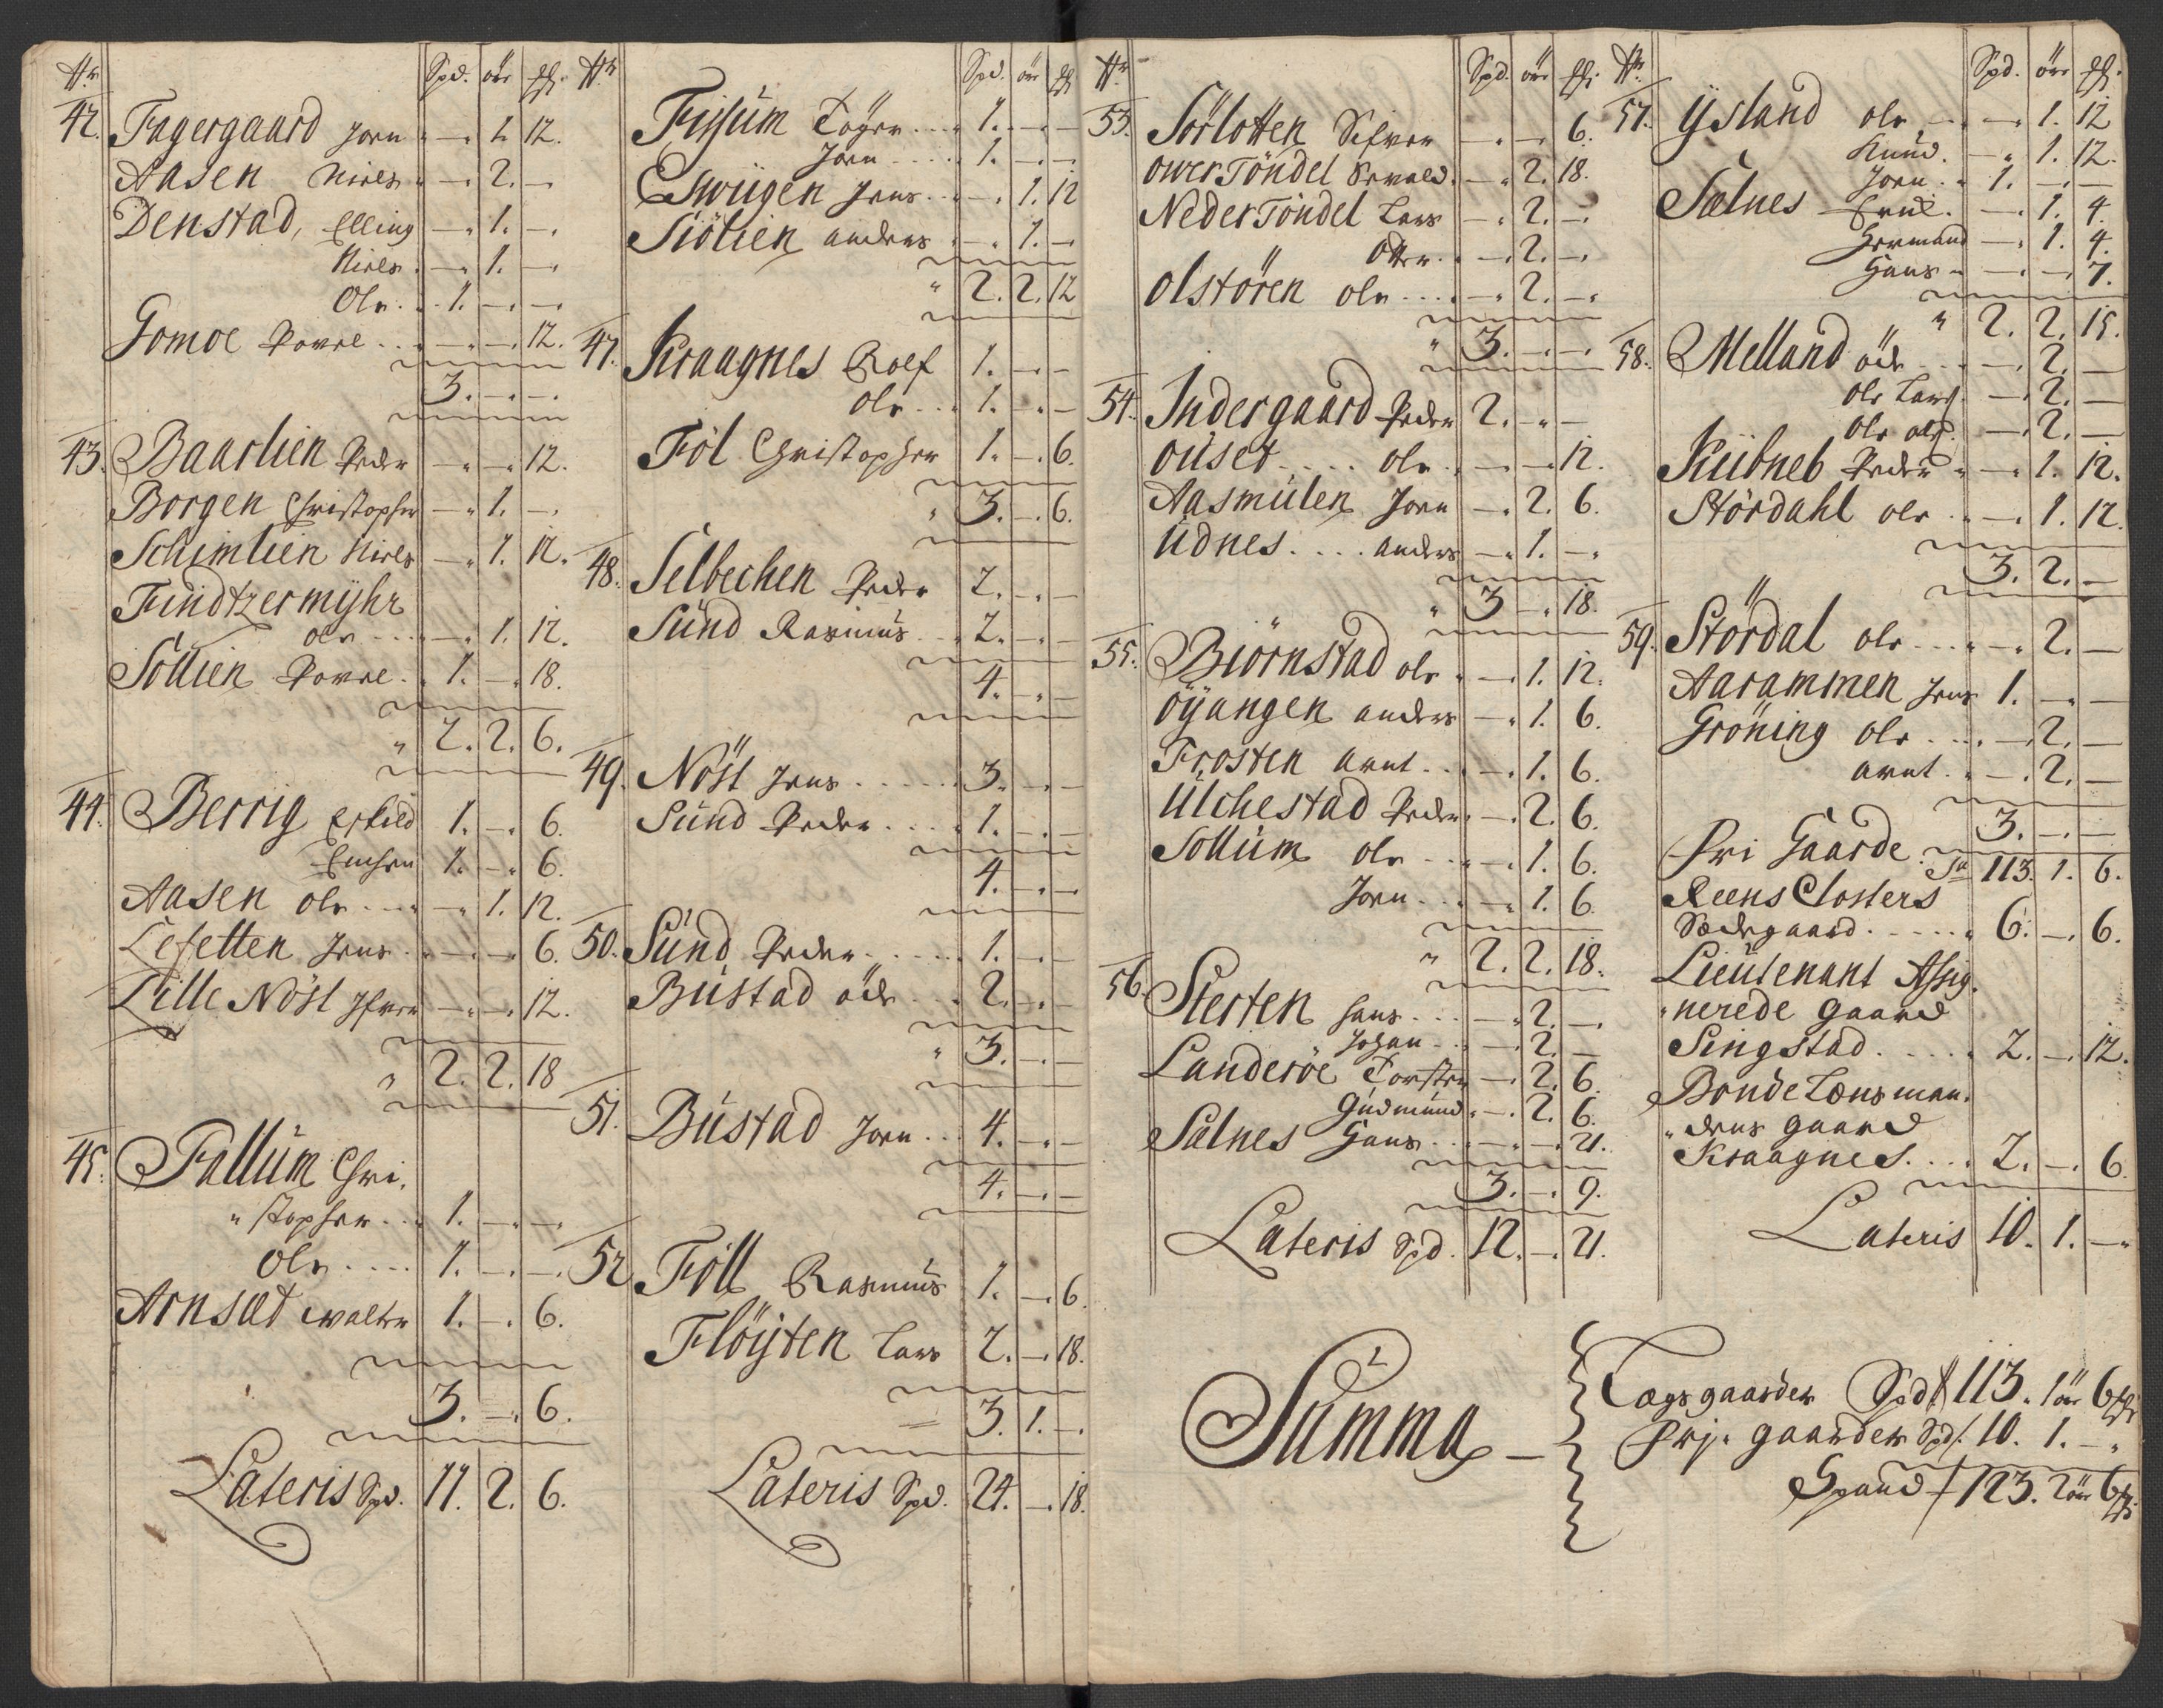 Nr. Spd. öre
42. Fagergaard Joen — 1. 12.
Aasen Niels — 2. —
Denstad, Elling — 1. —
Niels — 1. —
Ole 1. — —
Gomoe Povel — — 12.
3. — —
43. Baarlien Peder — — 12.
Borgen Christopher — 1. —
Schimlien Niels — 1. 12.
Findtzermyhr
ole — 1. 12.
Sollien Povel 1. — 18.
2. 2. 6.
44. Berrig Eskild 1. — 6.
1. — 6.
Aasen ole — 1. 12.
Lefetten Jens — — 6.
Lille Nöst — — 12.
2. 2. 18
45. Fallum Chri,
stopher 1. — —
Ole 1. — —
Arnsæt Walter 1. — 6.
3. — 6.
Lateris Spd. 11. 2. 6.
Nr. Spd. öre
Töger 1. — —
Joen 1. — —
Jens — 1. 12
Siölien anders — 1. —
2. 2. 12
47. Kraagnes Rolf 1. — —
ole 1. — —
Föl Christopher 1. — 6.
3. — 6.
48. Selbechen Peder 2. — —
Sund Rasmus 2. — —
4. — —
49. Nöst Jens 3. — —
Sund Peder 1. — —
4. — —
50. Sund Peder 1. — —
Bustad öde 2. — —
3. — —
51. Bustad Joen 4. — —
4. — —
52 Föll Rasmus 1. — 6.
Flöyten Lars 2. — 18.
3. 1. —
Lateris Spd. 24. — 18.
Nr. Spd. öre
53. Sörlotten Sifver — — 6.
Ower Töndel — 2. 18.
Neder Töndel Lars — 2. —
Otter — 2. —
Olstören ole — 2. —
3. — —
54. Indergaard Peder 2. — —
Ouset ole — — 12.
Aasmulen Joen — 2. 6.
Udnes anders — 1. —
3 — 18.
55. Biörnstad ole — 1. 12.
Öyangen anders — 1. 6.
Frosten arnt — 1. 6.
Ulchestad Peder — 2. 6.
Sollum ole — 1. 6.
Joen — 1. 6.
2. 2. 18.
56. Sterten hans — 2. —
Johan — 2. —
Landeröe Torsten — 2. 6.
Gudmund — 2. 6.
Salnes Hans — — 21.
3. — 9.
Lateris Spd. 12. — 21.
Nr. Spd. öre
57. Ysland ole — 1. 12
Knud — 1. 12.
Sælnes Joen 1. — —
— 1. 4.
Hermand — 1. 4.
Hans — — 7.
2. 2. 15.
58. Melland öde — 2. —
ole Lars. — 2. —
ole ols. — 2. —
Peder — 1. 12.
Stördahl ole — 1. 12.
3. 2. —
59. Stördal ole — 2. —
Aarammen Jens 1. — —
Gröning ole — 2. —
arnt — 2. —
3. — —
Fri Gaarde. 113. 1. 6.
Reens Closters
Sædegaard 6. — 6.
Lieutenant Assig,
nerede gaard
Singstad 2. — 12.
Bonde Lænsman,
dens gaard
Kraagnes 2. — 6
Lateris 10. 1. —
Summa —
Lægsgaarder Spd 113. 1 ör 6
Frje gaarder Spd 10. 1. —
Spand 123. 2 ör 6